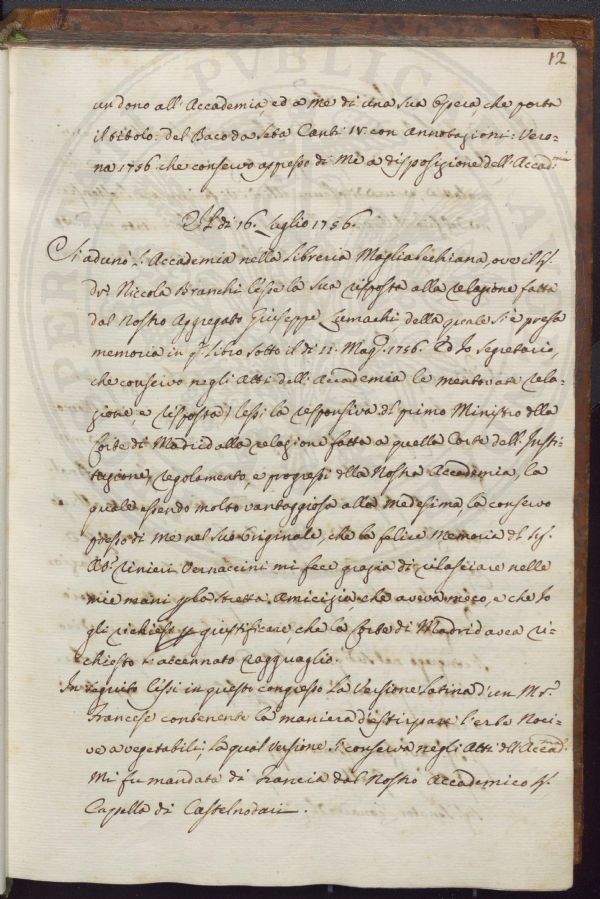 12
un dono all'Accademia, ed a me di una sua Opera, che porta
il titolo: del Baco da Seta Canti IV con Annotazioni: Vero-
na 1756 che conservo appresso di me a disposizione dell'Accad.mia
Il dì 16. Luglio 1756.
Si adunò l'Accademia nella Libreria Magliabechiana, ove il Sig.
Dr. Niccola Branchi lesse la sua risposta alla relazione fatta
dal nostro Aggregato Giuseppe Lumachi, della quale si è presa
memoria in q.to libro sotto il dì 11. Mag.o 1756. Ed Io Segretario,
che conservo negli Atti dell'Accademia le mentovate rela-
zione, e risposta, lessi la responsiva del primo Ministro della
Corte di Madrid alla relazione fatta a quella Corte dell'Insti-
tuzione, regolamento, e progressi della Nostra Accademia, la
quale essendo molto vantaggiosa alla medesima la conservo
presso di me nel suo Originale, che la felice memoria del Sig.
Ab. Rinieri Vernaccini mi fece grazia di rilasciare nelle
mie mani per la stretta amicizia, che aveva meco, e che Io
gli richiesi per giustificare, che la Corte di Madrid avea ri-
chiesto l'accennato ragguaglio.
In seguito lessi in questo congresso la Versione latina d'un Mr.
Francese contenente la maniera d'estirpare l'erbe Noci-
ve a vegetabili, la qual Versione si conserva negli Atti dell'Accad.
Mi fu mandata di Francia dal Nostro Accademico Sig.
Cappella di Castelnodari.
PVBLICA